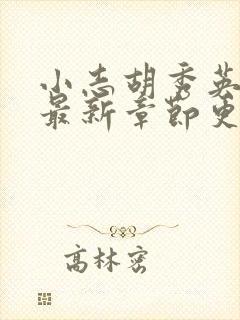 小志胡秀英
最新章节更
高林密